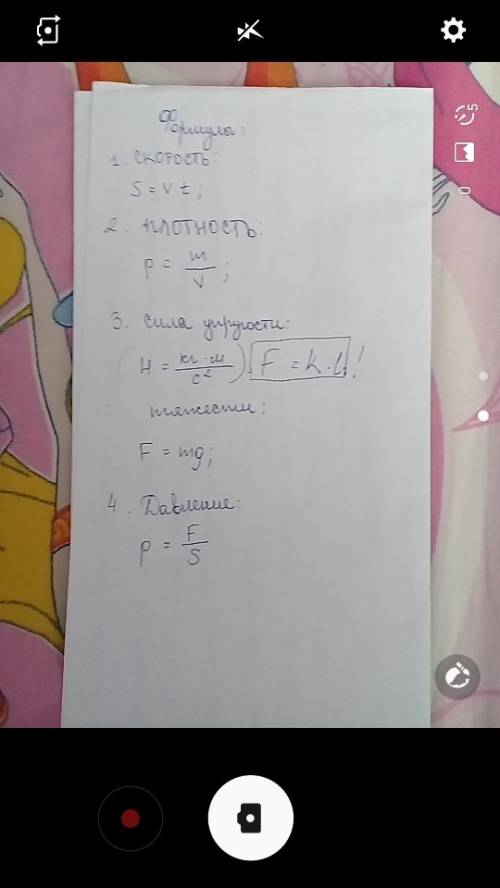 Формула:
1. СКОРОСТЬ:
S = v t;
2. ПЛОТНОСТЬ:
p = m / v ;
3. сила упругости:
(Н = кг·м / с²) F = k·l !
тяжести:
F = mg;
4. Давление:
p = F / S
5
0